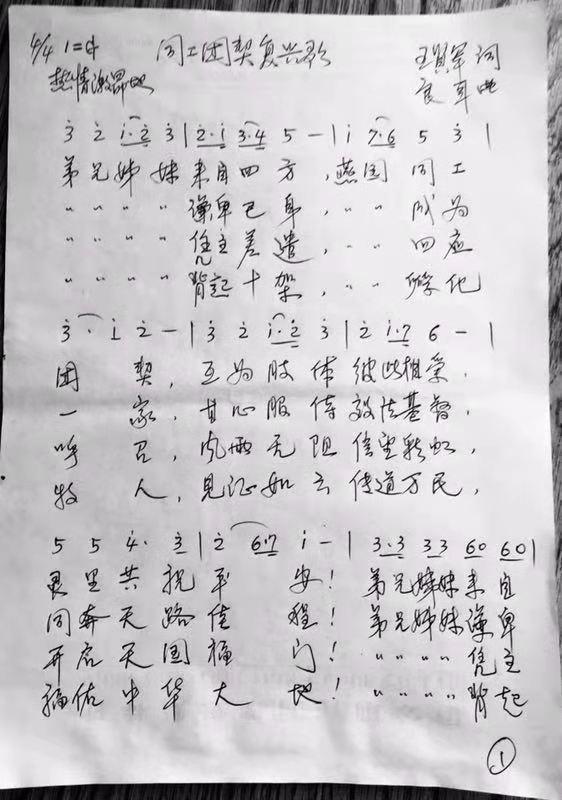 4/4 1= 同工团契复兴歌 王 军 词
热情激昂地 良 耳 曲
3̇ 2̇ i·2̇ 3̇ | 2̇·i 3̇·4̇ 5 - | i 7·6 5 3̇ |
弟兄姊妹来自四方,燕国同工
〃 〃 〃 〃 谦卑己身,〃 〃 成为
〃 〃 〃 〃 凭主差遣,〃 〃 回应
〃 〃 〃 〃 背起十架,〃 〃 孵化
3̇ · i 2̇ - | 3̇ 2̇ i·2̇ 3̇ | 2̇ i·7 6 - |
团 契,互为肢体彼此相 ,
一 家,甘心服侍效法基督,
呼 召,风雨无阻信望彩虹,
牧 人,见证如云传道万民,
5 5 4̇· 3̇ | 2̇ 6·7 i - | 3·3 33 60 60 |
灵里共祝平 安!弟兄姊妹来自
同奔天路佳 程!弟兄姊妹谦卑
开启天国福 门!〃 〃 〃 〃 凭主
福佑中华大 地!〃 〃 〃 〃 背起
①